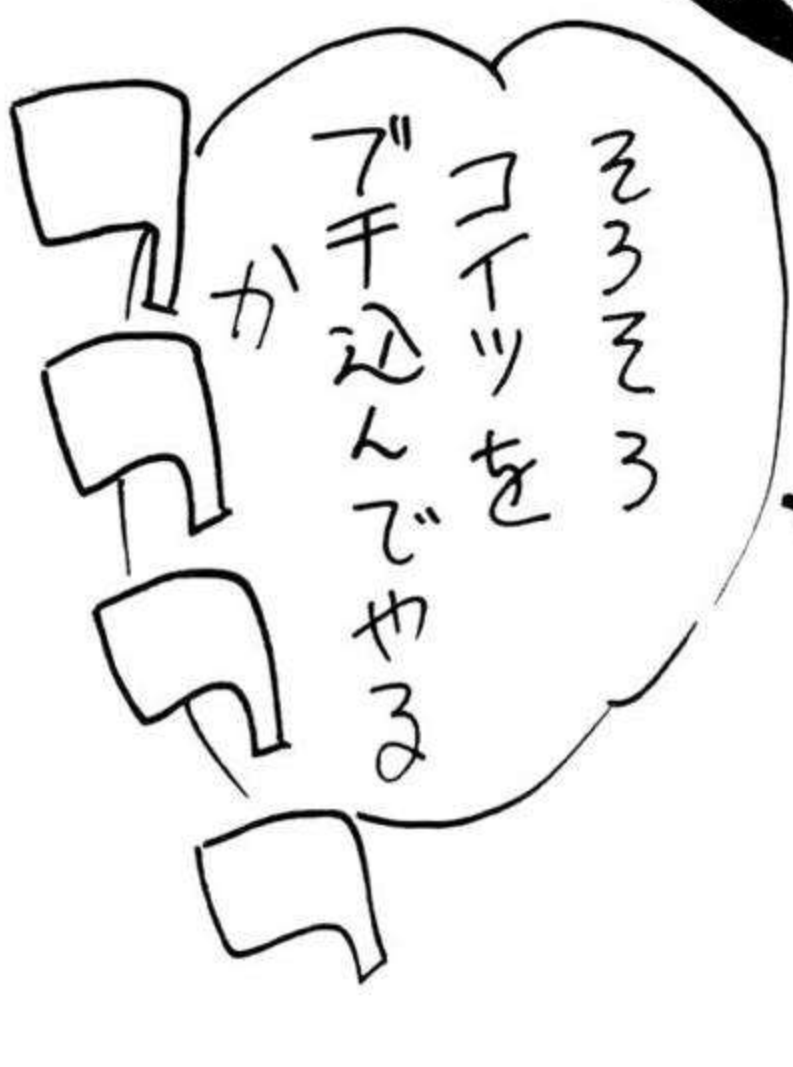 そろそろ
コイツを
ブチ込んでやる
か